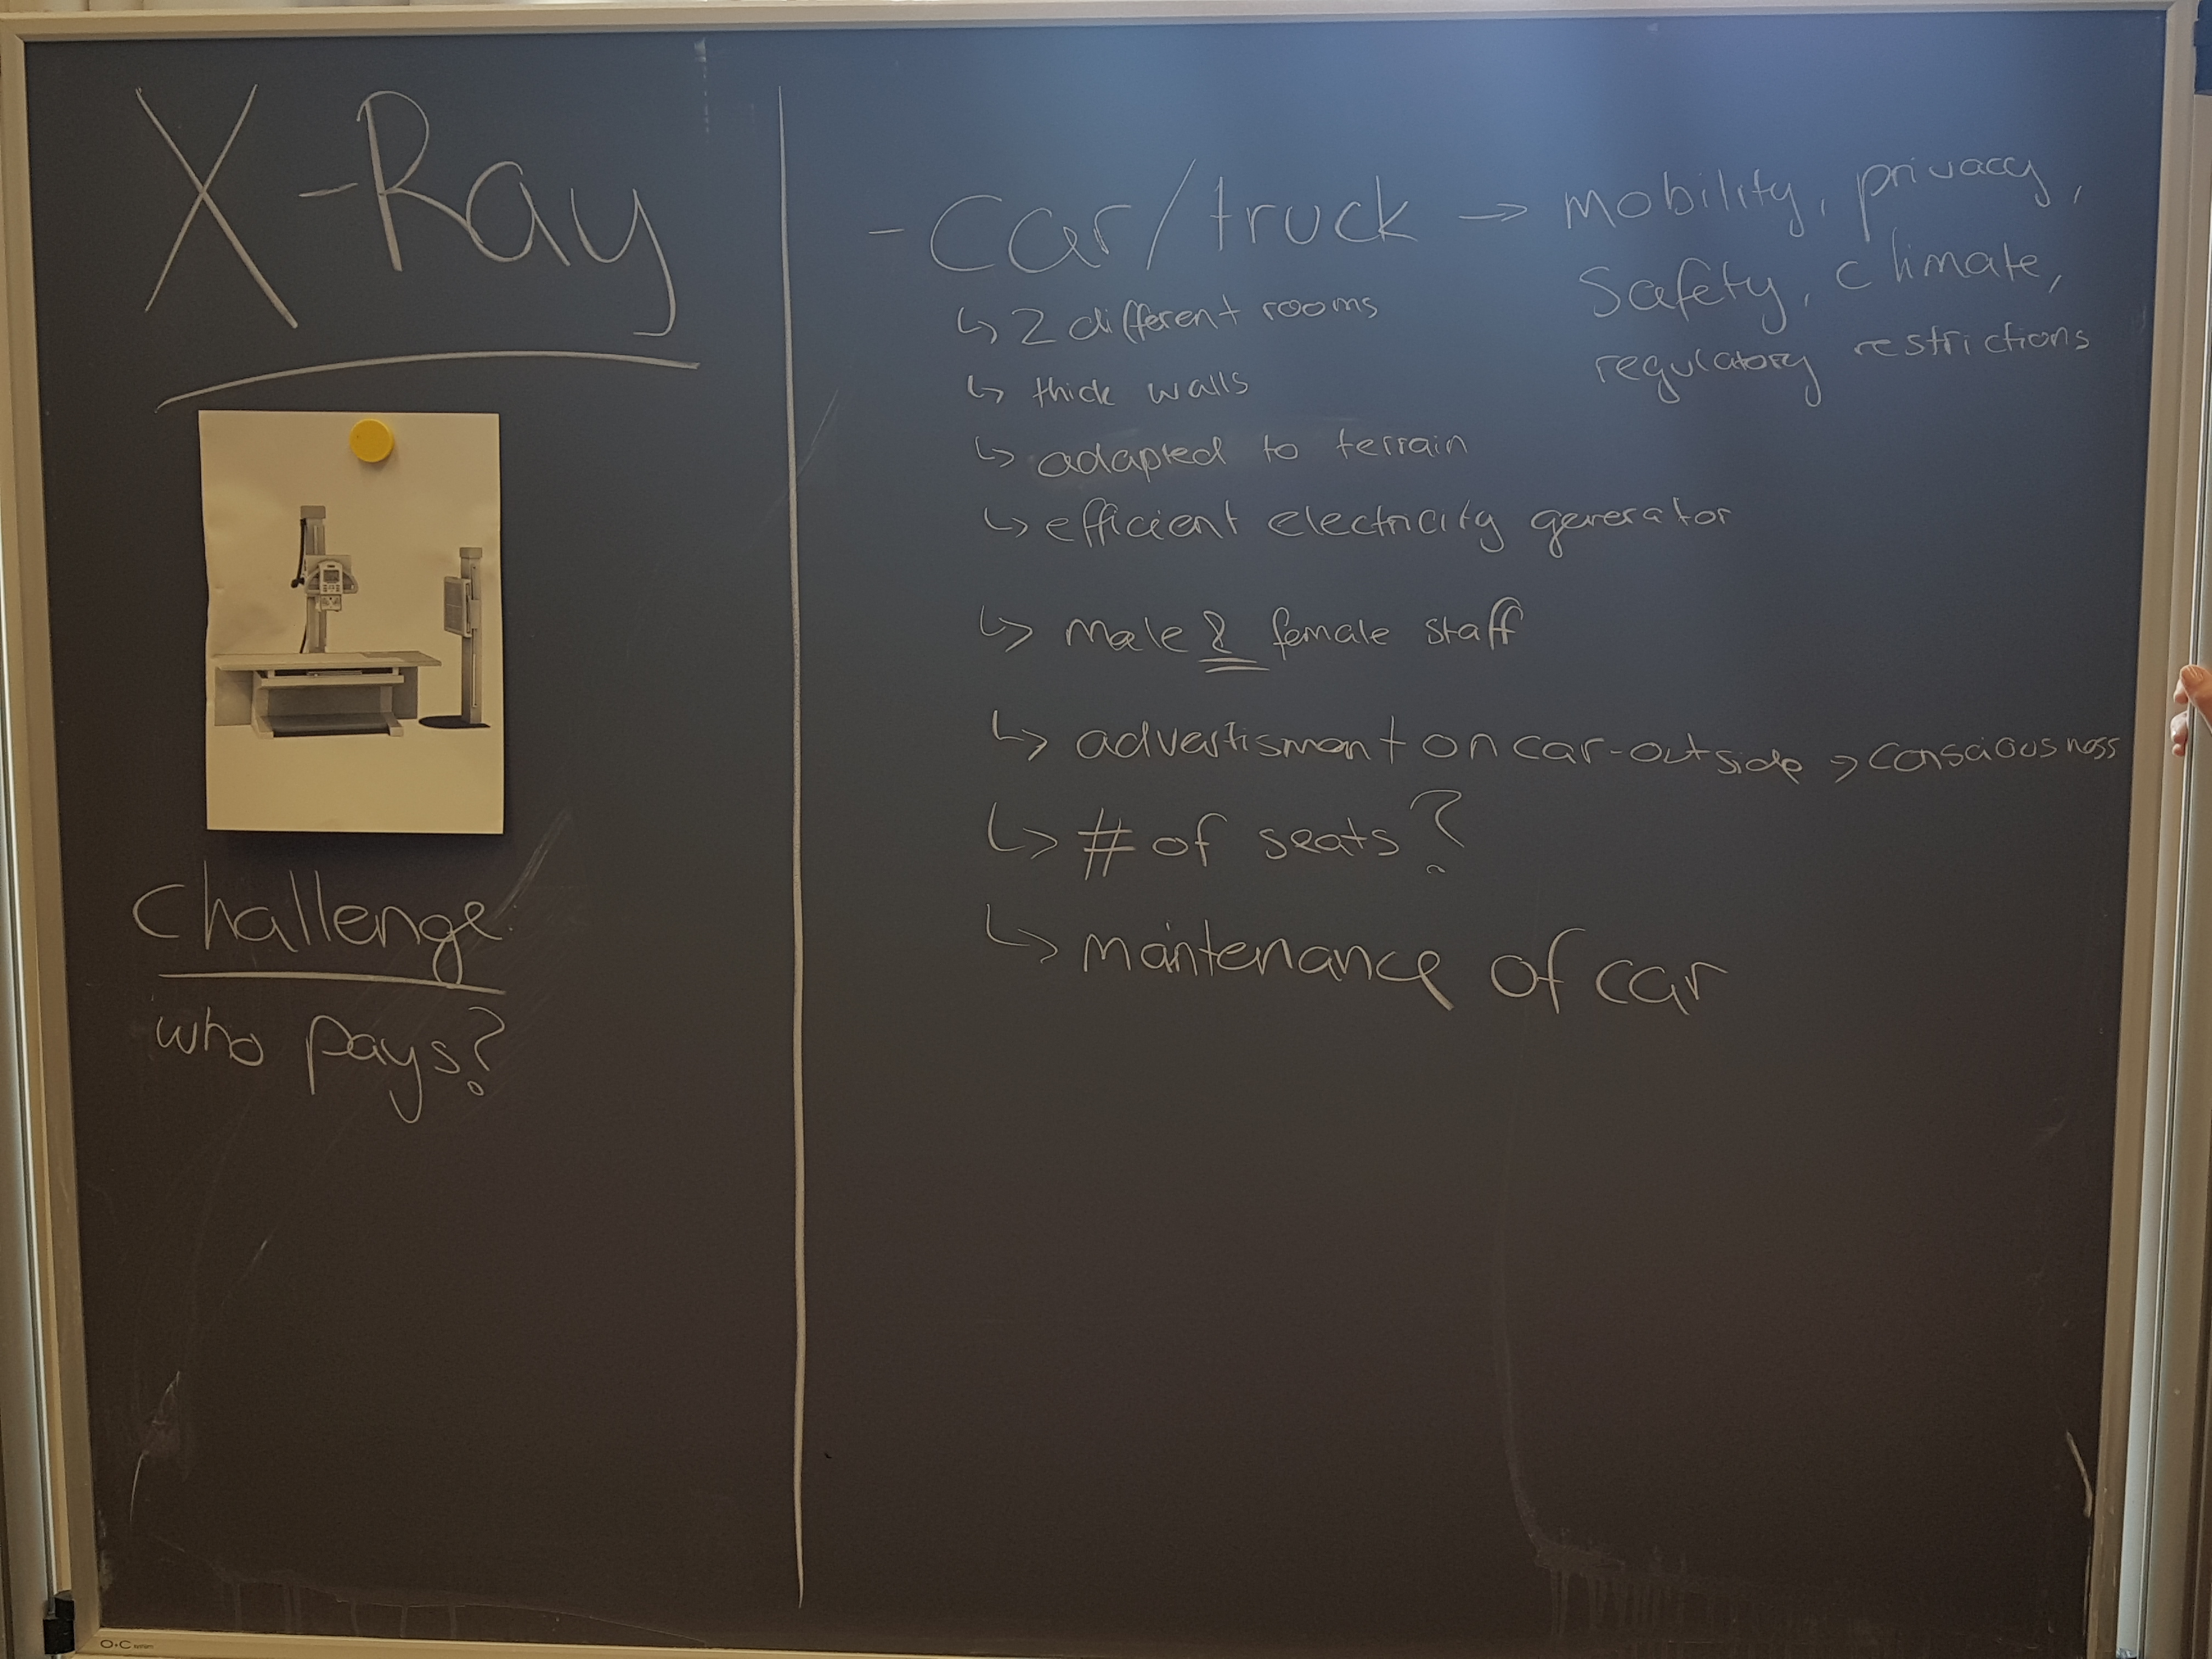 X-Ray
Challenge
who pays?
- Car/truck → mobility, privacy,
Safety, climate,
regulatory restrictions
↳ 2 different rooms
↳ thick walls
↳ adapted to terrain
↳ efficient electricity generator
↳ male & female staff
↳ advertisment on car-outside → consciousness
↳ # of seats?
↳ maintenance of car
O•C